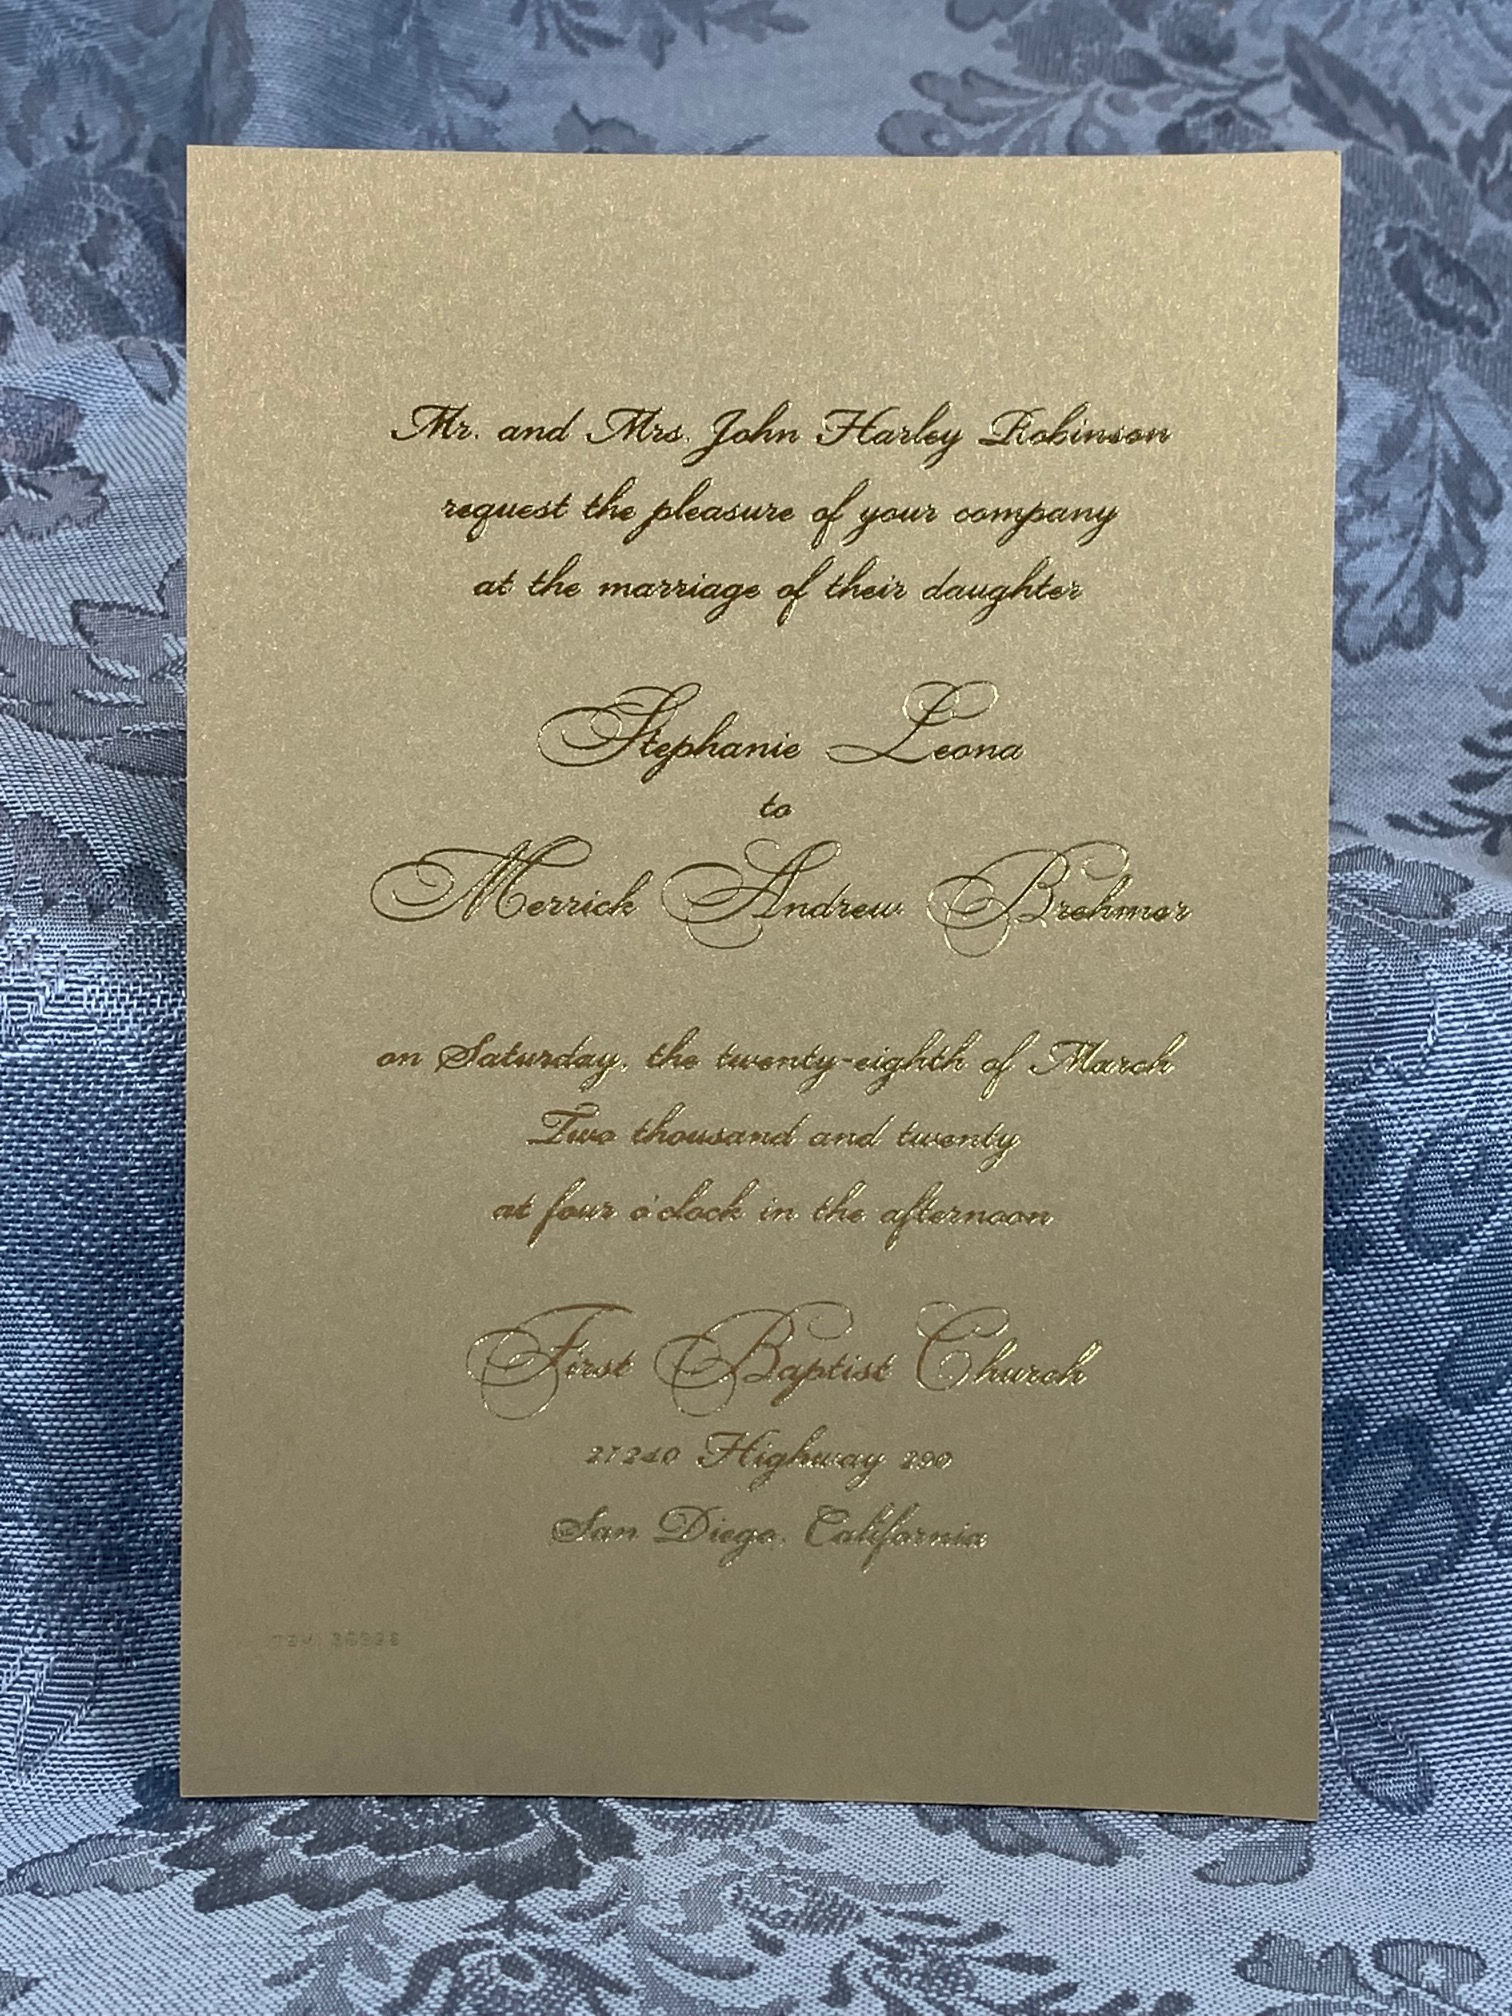 Mr. and Mrs. John Harley Robinson
request the pleasure of your company
at the marriage of their daughter
Stephanie Leona
to
Merrick Andrew Brehmer
on Saturday, the twenty-eighth of March
Two thousand and twenty
at four o'clock in the afternoon
First Baptist Church
27240 Highway 290
San Diego, California